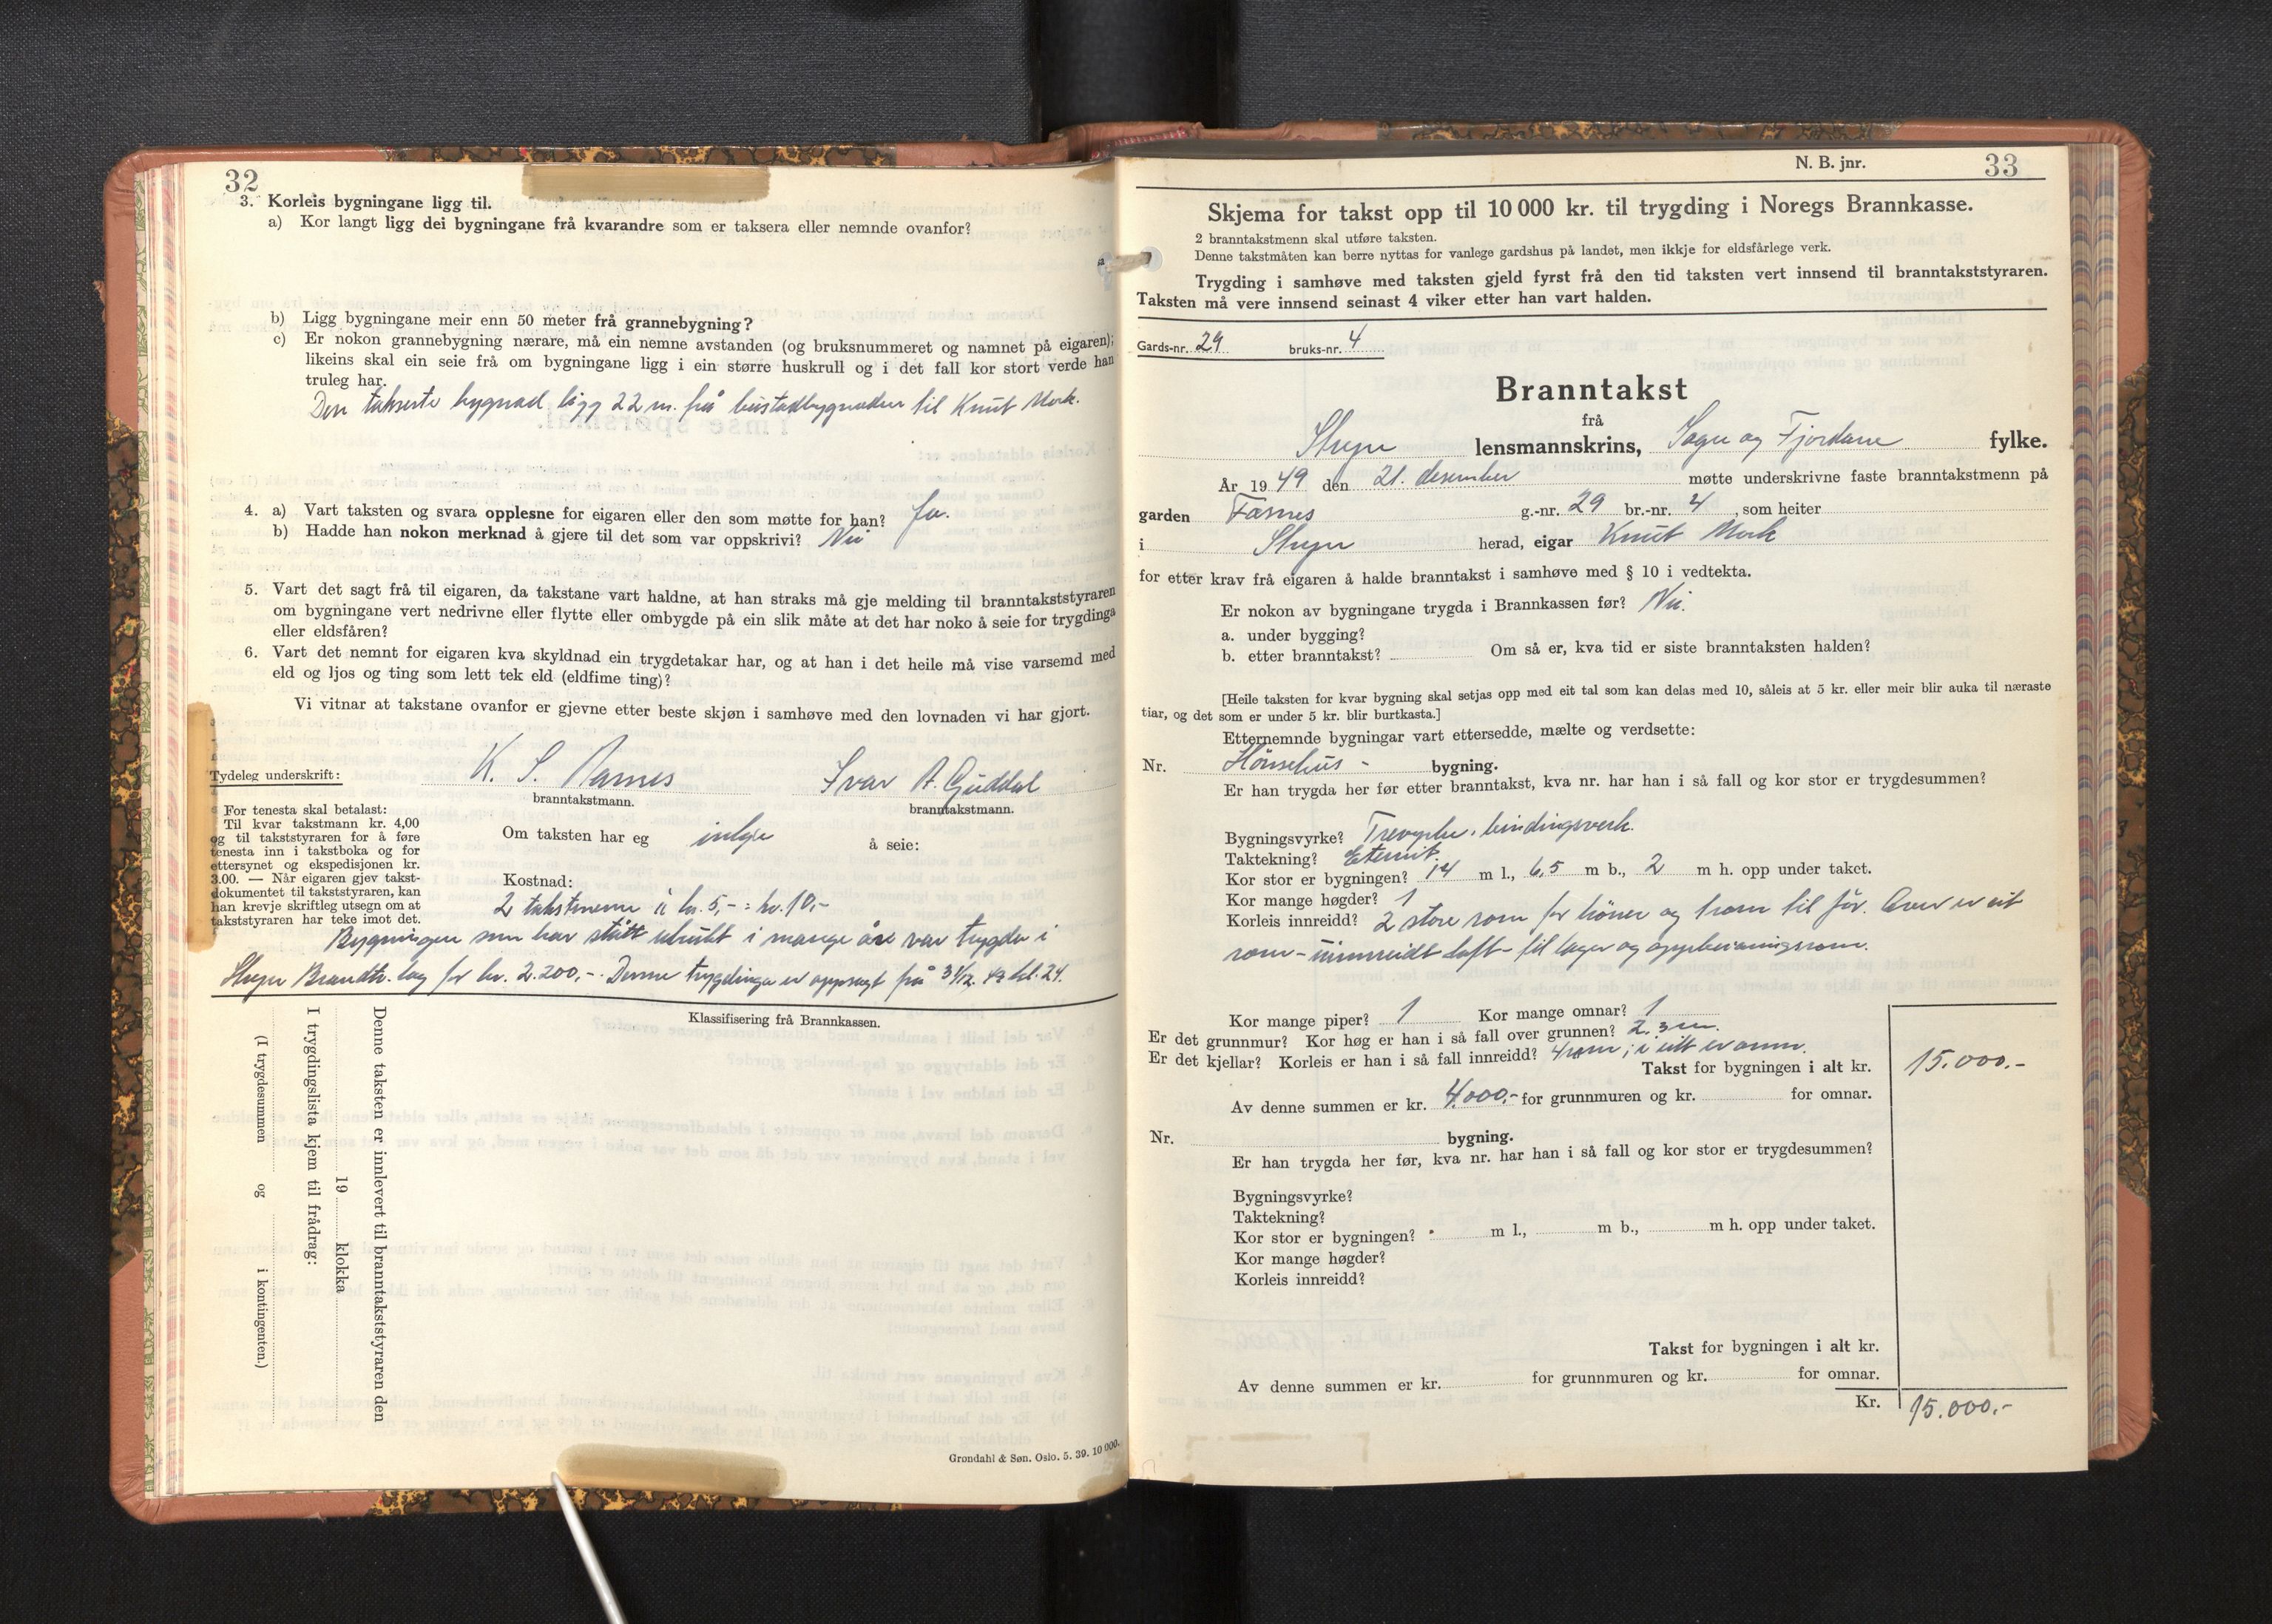 32
3. Korleis bygningane ligg til.
a) Kor langt ligg dei bygningane frå kvarandre som er taksera eller nemnde ovanfor?
b) Ligg bygningane meir enn 50 meter frå grannebygning?
c) Er nokon grannebygning nærare, må ein nemne avstanden (og bruksnummeret og namnet på eigaren);
likeins skal ein seie frå om bygningane ligg i ein større huskrull og i det fall kor stort verde han
truleg har.
Den takserte bygnad ligg 22 m. frå bustadbygnaden til Knut Mork.
4. a) Vart taksten og svara opplesne for eigaren eller den som møtte for han? Ja.
b) Hadde han nokon merknad å gjere til det som var oppskrivi? Nei
5. Vart det sagt frå til eigaren, da takstane vart haldne, at han straks må gje melding til branntakststyraren
om bygningane vert nedrivne eller flytte eller ombygde på ein slik måte at det har noko å seie for trygdinga
eller eldsfåren?
6. Vart det nemnt for eigaren kva skyldnad ein trygdetakar har, og at han i det heile må vise varsemd med
eld og ljos og ting som lett tek eld (eldfime ting)?
Vi vitnar at takstane ovanfor er gjevne etter beste skjøn i samhøve med den lovnaden vi har gjort.
Tydeleg underskrift: K. S. Ivar A. Guddal
branntakstmann. branntakstmann.
For tenesta skal betalast:
Til kvar takstmann kr. 4,00
og til takststyraren for å føre
tenesta inn i takstboka og for
ettersynet og ekspedisjonen kr.
3,00. — Når eigaren gjev takst-
dokumentet til takststyraren, kan
han krevje skriftleg utsegn om at
takststyraren har teke imot det.
Om taksten har eg inkje å seie:
Kostnad:
2 takstmenn à kr. 5,- = kr. 10,-
Bygningen som har stått ubrukt i mange åre var trygda i
Stryn Brandtr. lag for kr. 2.200,-. Denne trygdinga er oppsagt frå 31/12. 49 kl. 24.
Klassifisering frå Brannkassen.
Denne taksten er innlevert til branntakststyraren den
19 klokka
I trygdingslista kjem til frådrag:
(I trygdesummen og i kontingenten.)
Grøndahl & Søn. Oslo. 5. 39. 10 000.
N. B. jnr. 33
Skjema for takst opp til 10 000 kr. til trygding i Noregs Brannkasse.
2 branntakstmenn skal utføre taksten.
Denne takstmåten kan berre nyttas for vanlege gardshus på landet, men ikkje for eldsfårlege verk.
Trygding i samhøve med taksten gjeld fyrst frå den tid taksten vert innsend til branntakststyraren.
Taksten må vere innsend seinast 4 viker etter han vart halden.
Gards-nr. 29 bruks-nr. 4
Branntakst
frå
Stryn lensmannskrins, Sogn og Fjordane fylke.
År 1949 den 21. desember møtte underskrivne faste branntakstmenn på
garden g.-nr. 29 br.-nr. 4, som heiter
i Stryn herad, eigar Knut Mork
for etter krav frå eigaren å halde branntakst i samhøve med § 10 i vedtekta.
Er nokon av bygningane trygda i Brannkassen før? Nei.
a. under bygging?
b. etter branntakst? Om så er, kva tid er siste branntaksten halden?
[Heile taksten for kvar bygning skal setjas opp med eit tal som kan delas med 10, såleis at 5 kr. eller meir blir auka til næraste
tiar, og det som er under 5 kr. blir burtkasta.]
Etternemnde bygningar vart ettersedde, mælte og verdsette:
Nr. Hönsehus - bygning.
Er han trygda her før etter branntakst, kva nr. har han i så fall og kor stor er trygdesummen?
Bygningsvyrke? Trevyrke, bindingsverk.
Taktekning? Eternit.
Kor stor er bygningen? 14 m l., 6,5 m b., 2 m h. opp under taket.
Kor mange høgder? 1
Korleis innreidd? 2 store rom for höner og 1 rom til fôr. Over er eit
rom - uinnreidt loft - til lager og oppbevaringsrom.
Kor mange piper? 1 Kor mange omnar? 1
Er det grunnmur? Kor høg er han i så fall over grunnen? 2.3 m.
Er det kjellar? Korleis er han i så fall innreidd? 4 rom; i eitt er omn.
Takst for bygningen i alt kr. 15.000.-
Av denne summen er kr. 4.000.- for grunnmuren og kr. for omnar.
Nr. bygning.
Er han trygda her før, kva nr. har han i så fall og kor stor er trygdesummen?
Bygningsvyrke?
Taktekning?
Kor stor er bygningen? m l., m b., m h. opp under taket.
Kor mange høgder?
Korleis innreidd?
Takst for bygningen i alt kr.
Av denne summen er kr. for grunnmuren og kr. for omnar.
Kr. 15.000.-